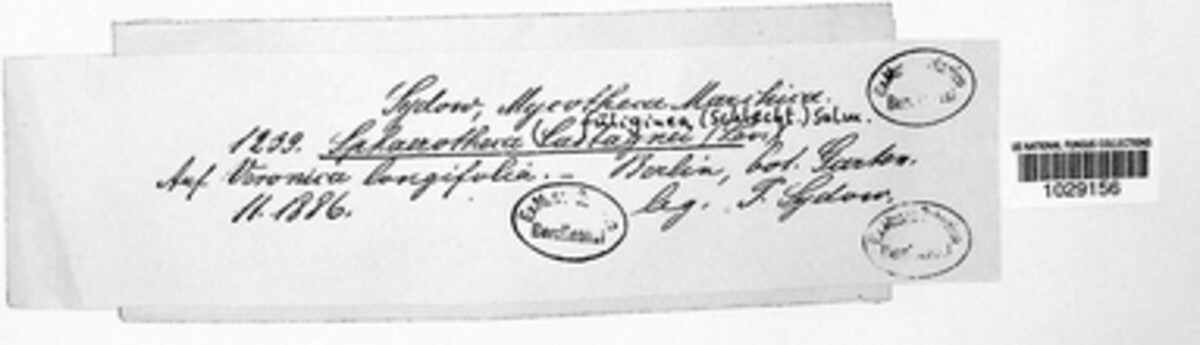 Sydow, Mycotheca Marchica.
fuliginea (Schlecht.) Salm.
1239. Sphaerotheca Castagnei Lév.
Auf Veronica longifolia. – Berlin, bot. Garten.
11. 1886. leg. P. Sydow.
US NATIONAL FUNGUS COLLECTIONS
1029156